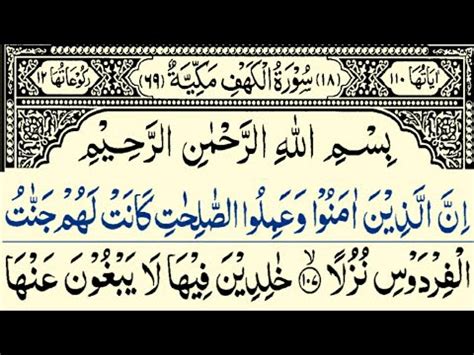 اٰیَاتُهَا ۱۱۰ (۱۸) سُوْرَةُ الْكَهْفِ مَكِّیَّةٌ (۶۹) رُكُوْعَاتُهَا ۱۲
بِسْمِ اللهِ الرَّحْمٰنِ الرَّحِیْمِ
اِنَّ الَّذِیْنَ اٰمَنُوْا وَعَمِلُوا الصّٰلِحٰتِ كَانَتْ لَهُمْ جَنّٰتُ
الْفِرْدَوْسِ نُزُلًا ۙ۱۰۷ خٰلِدِیْنَ فِیْهَا لَا یَبْغُوْنَ عَنْهَا